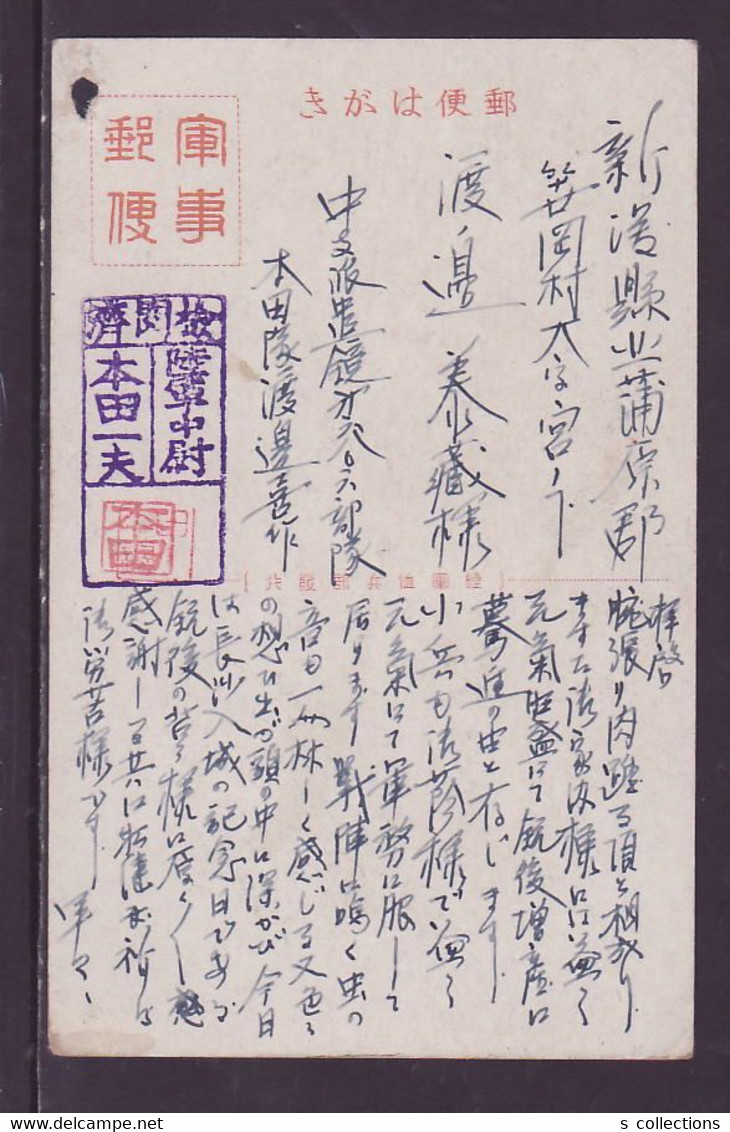 郵便はがき
軍事
郵便
新潟縣北蒲原郡
笹岡村大字宮ノ下
渡邉泰藏様
中支派遣鏡第六八〇六部隊
本田隊渡邉喜作
検閲濟
陸軍中尉
本田一夫
本田
陸軍恤兵部發行
拝啓
腕張り肉踊る頃と相成り
ました御家内様には益々
元氣旺盛にて銃後増産に
驀進の由と存じます
小兵も御蔭様で益々
元氣にて軍務に服して
居ります 戰陣に鳴く虫の
音も一入淋しく感じる又色々
の想ひ出が頭の中に深かび今日
は長沙入城の記念日である
銃後の皆々様に厚く感
感謝しる共に
御労苦様です 早々
s collections